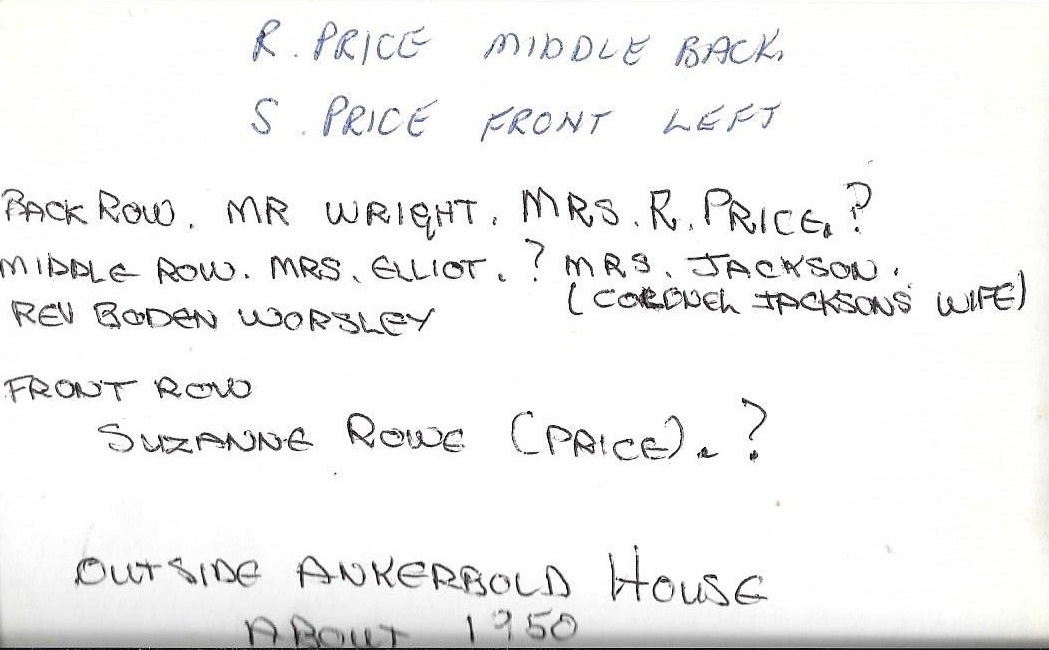 R. PRICE MIDDLE BACK.
S. PRICE FRONT LEFT
BACK ROW. MR WRIGHT. MRS. R. PRICE. ?
MIDDLE ROW. MRS. ELLIOT. ? MRS. JACKSON.
(CORONEL JACKSONS WIFE)
REV BODEN WORSLEY
FRONT ROW
SUZANNE ROWE (PRICE). ?
OUTSIDE ANKERBOLD HOUSE
ABOUT 1950